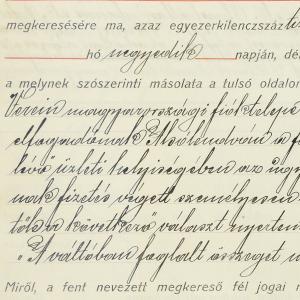 megkeresésére ma, azaz egyezerkilenczszáz
hó negyedik napján, dé
a melynek szószerinti másolata a tulsó oldalon
Verein magyarországi fióktelepe
elfogadónak Alsólendván a f
lévő üzleti helyiségében az ügy
nak fizetés végett személyesen
tőle a következő választ nyertem
„A váltóban foglalt összeget
Miről, a fent nevezett megkereső fél jogai